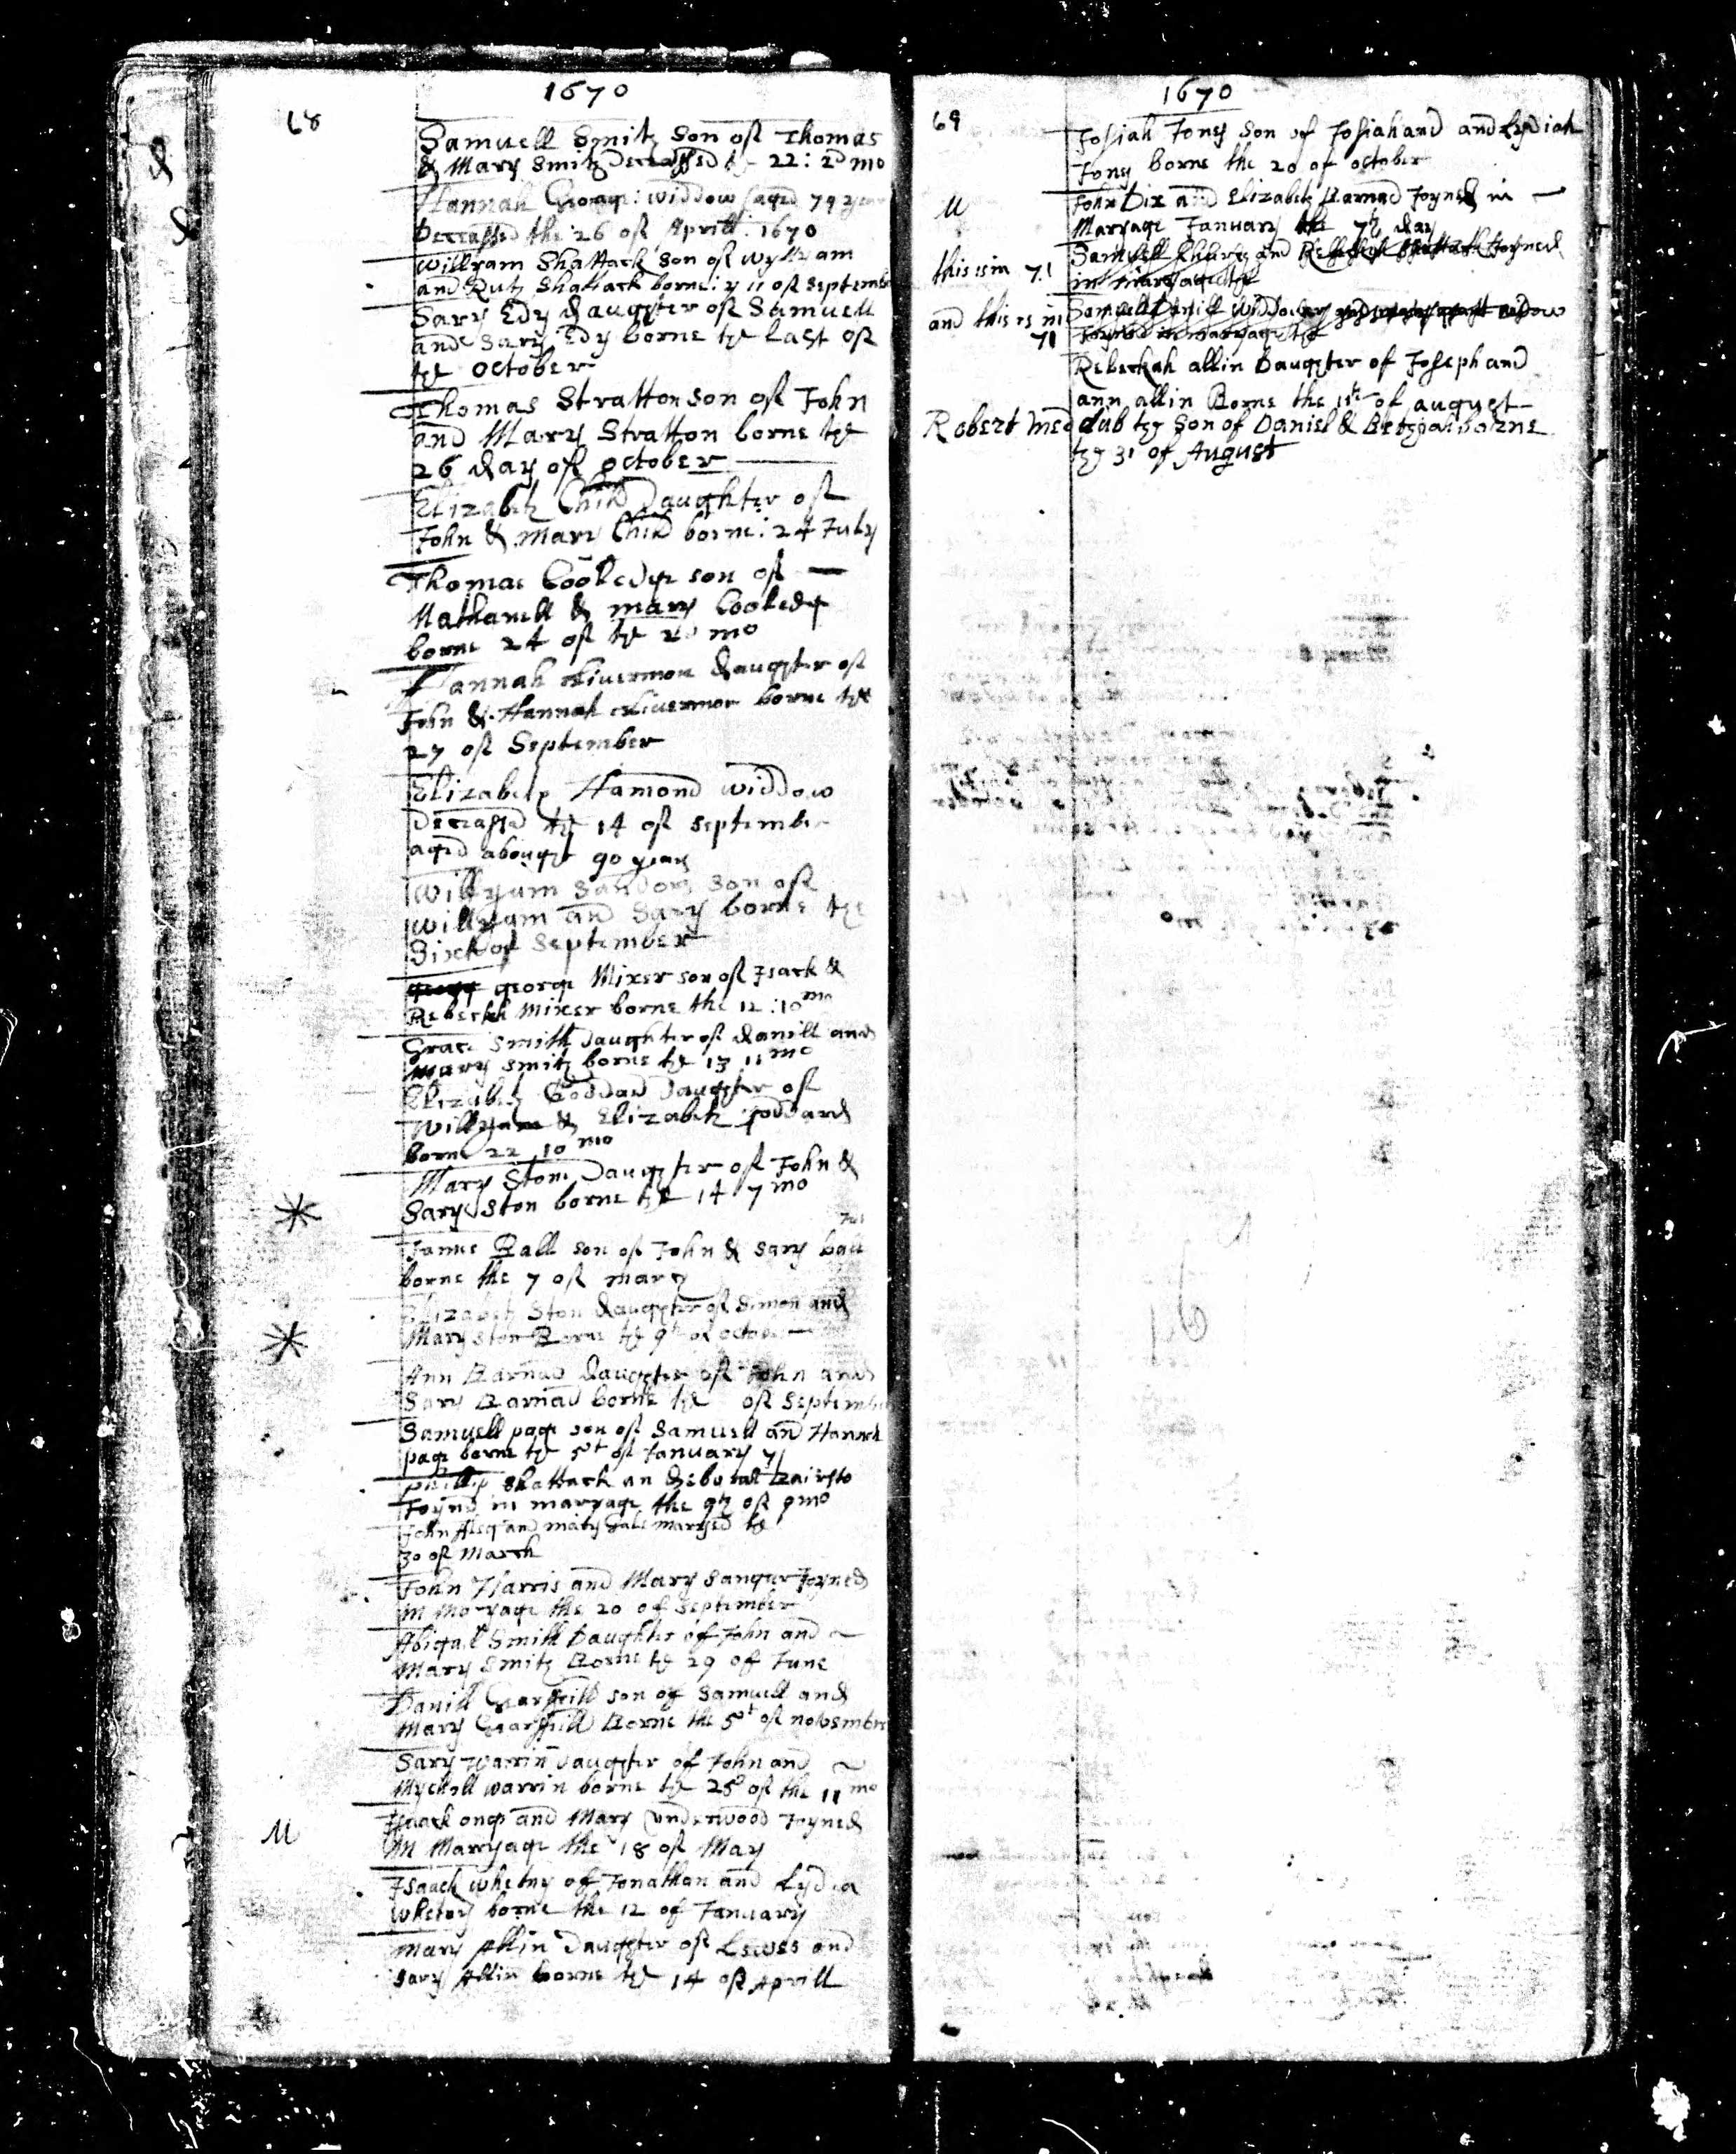 1670
68
Samuell Smith Son of Thomas
& Mary Smith Deceassed 22 : 2d mo
Hannah widdow aged 79 year
Deceassed the 26 of Aprill : 1670
Willyam Shattack son of Wyllyam
and Ruth Shattack borne : y 11 of Septemb
Sary Edy daughter of Samuell
and Sary Edy borne the last of
the October
Thomas Stratton son of John
and Mary Stratton borne the
26 day of october
Elizabeth Child Daughter of
John & Mary Child borne : 24 July
Thomas Cooledge son of
Nathaniell & mary Cooledg
borne 24 of the 2d mo
Hannah Livermore daughter of
John & Hannah Livermor borne the
27 of September
Elizabeth Hamond widdow
Deceassed the 14 of September
aged abought 90 years
Willyam Sanders Son of
Willyam and Sary borne the
Sixth of September
george Mixer son of Isack &
Rebeckh Mixer borne the 12 : 10 mo
Grace Smith Daughter of daniell and
Mary Smith borne the 13 11 mo
Elizabeth Goddard Daughter of
Willyam & Elizabeth goddard
borne 22 10 mo
Mary Stone Daughter of John &
Sary Ston borne the 14 7 mo
James Ball son of John & Sary ball
borne the 7 of march
Elizabeth Ston daughter of Simon and
Mary Ston Borne the 9th of october
Ann Barnad daughter of John and
Sary Barnad borne the of Septemb
Samuell page son of Samuell and Hannah
page borne the 5t of January 71
phillip Shattack an Debora Bairsto
Joyned in marryage the 9th of 9 mo
John and mary Gale marryed the
30 of March
John Harris and Mary Sanger Joyned
in Maryage the 20 of September
Abigail Smith Daughter of John and
Mary Smith Borne the 29 of June
Daniell Garffeild son of Samuell and
Mary Garffeild Borne the 5t of november
Sary Warrin daughter of John and
Mychell Warrin borne the 25 of the 11 mo
M
Isaack onge and Mary underwood Joyned
in Marryage the 18 of May
Isaack whetny of Jonathan and Lydia
whetny borne the 12 of January
Mary Allin Daughter of Lewes and
Sary Allin borne the 14 of Aprill
1670
69
Josiah Jones Son of Josiah and and Lydiah
Jones borne the 20 of october
M
John Dix and Elizabeth Barnad Joyned in
Maryage January the 7th day
this is in 71
Samuell Church and Rebeckah Shattack Joyned
in marryage the
and this is in
71
Samuell widdower and widow
Joyned in marryage the
Rebeckah allin Daughter of Joseph and
ann allin Borne the 11th of august
Robert Meddub the Son of Daniel & Bethya borne
the 31 of August